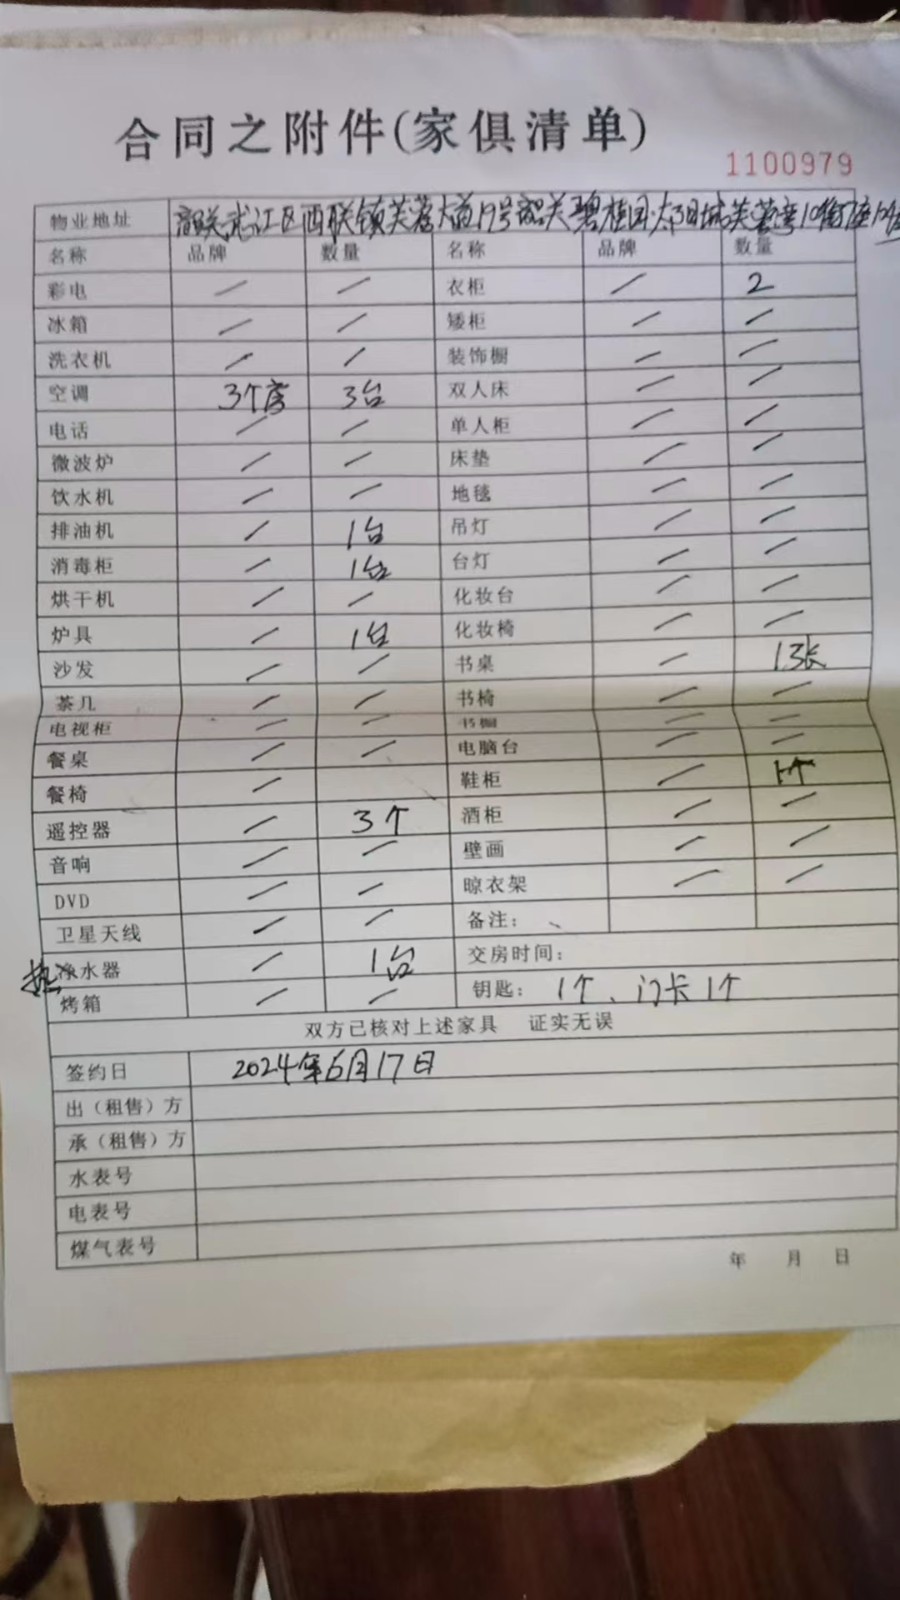 合同之附件(家俱清单)
1100979
物业地址 韶关武江区西联镇芙蓉大道17号韶关碧桂园·太阳城芙蓉湾10街
名称 品牌 数量 名称 品牌 数量
彩电 / / 衣柜 / 2
冰箱 / / 矮柜 / /
洗衣机 / / 装饰橱 / /
空调 3个房 3台 双人床 / /
电话 / / 单人柜 / /
微波炉 / / 床垫 / /
饮水机 / / 地毯 / /
排油机 / 1台 吊灯 / /
消毒柜 / 1台 台灯 / /
烘干机 / / 化妆台 / /
炉具 / 1台 化妆椅 / /
沙发 / / 书桌 /
茶几 / / 书椅 / /
电视柜 / / 书橱 / /
餐桌 / / 电脑台 / /
餐椅 / 鞋柜 / 1个
遥控器 / 3个 酒柜 / /
音响 / / 壁画 / /
DVD / / 晾衣架 / /
卫星天线 / / 备注:
热水器 / 1台 交房时间:
烤箱 / / 钥匙: 1个、门卡1个
双方已核对上述家具 证实无误
签约日 2024年6月17日
出（租售）方
承（租售）方
水表号
电表号
煤气表号
年 月 日